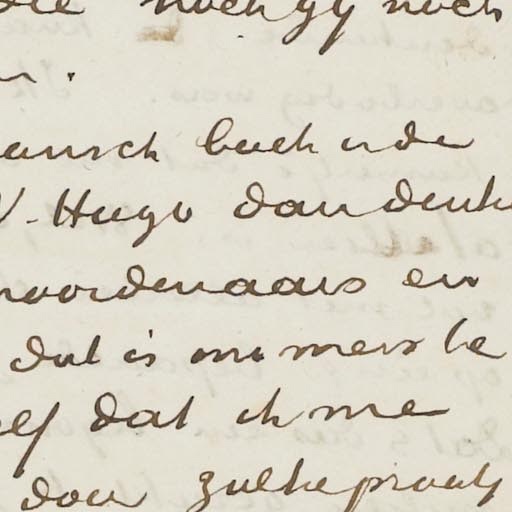 noch gy noch
n.
ansch boek v de
V. Hugo dan denke
moordenaars en
dat is immers be
elf dat ik me
dou zulke praatj